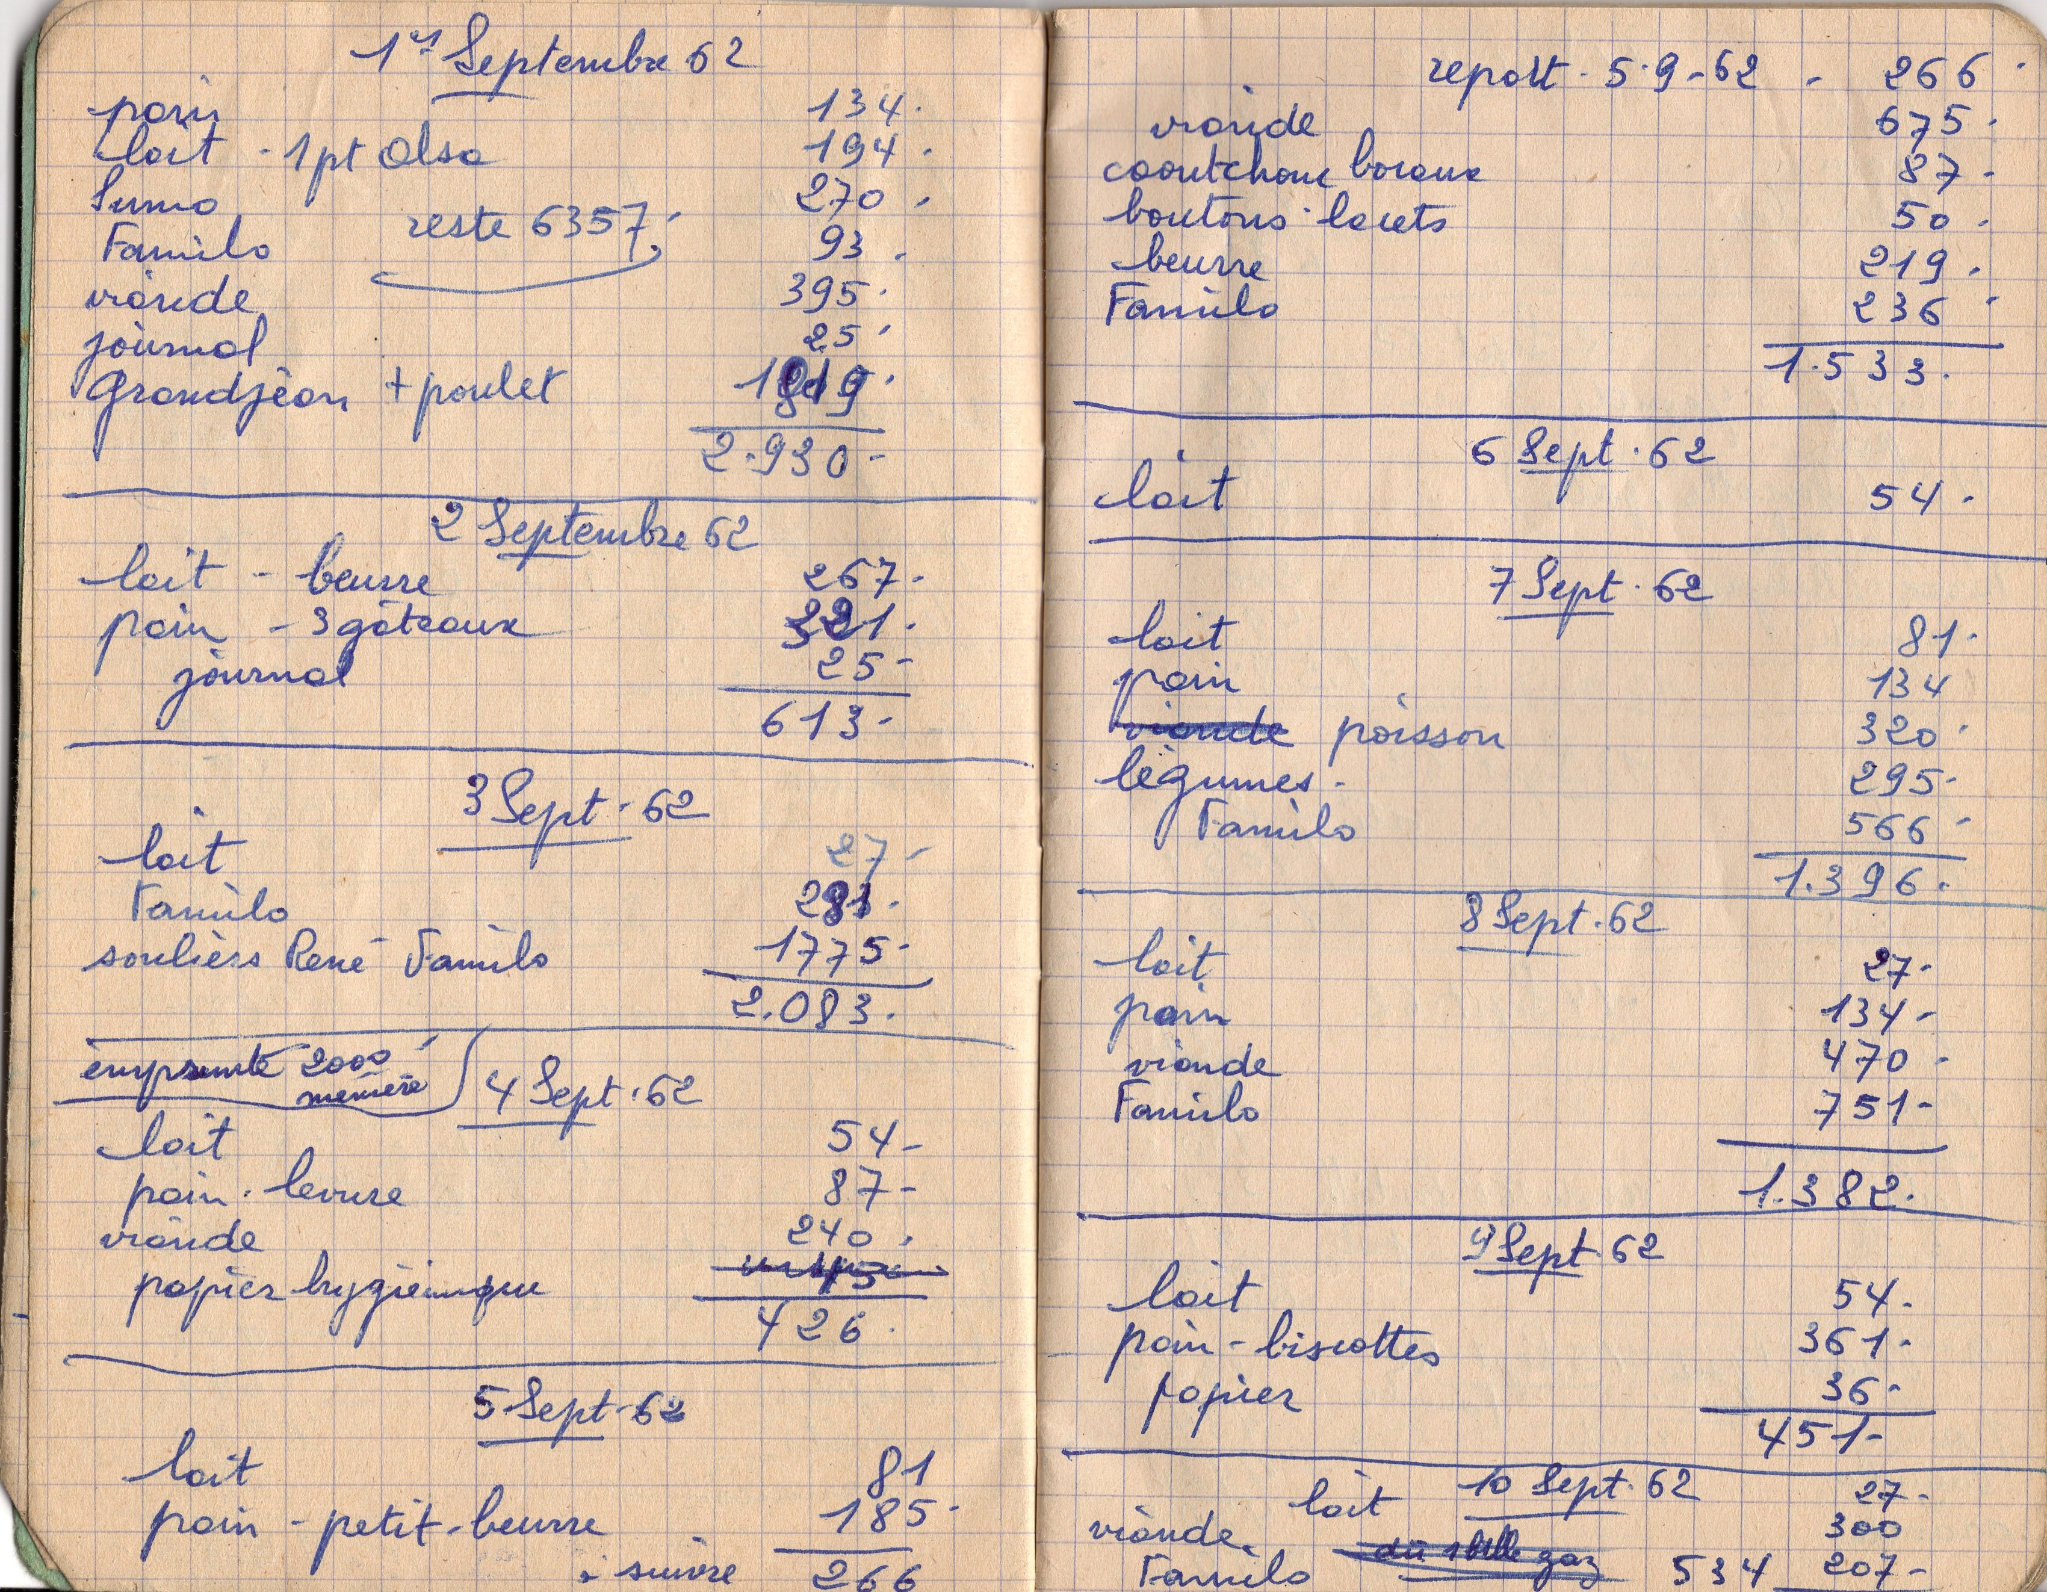 1er Septembre 62
pain 134.
lait - 1 pt Alsa 194.
Sumo 270.
reste 6357.
Familo 93.
viande 395.
journal 25
Grandjean + poulet 1819.
2.930 -
2 Septembre 62
lait - beurre 267.
pain - 3 gâteaux 321.
journal 25 -
613.
3 Sept. 62
lait 27 -
Familo 281.
souliers René Familo 1775.
2.083.
emprunté 2000
mémère
4 Sept. 62
lait 54 -
pain. levure 87 -
viande 240.
papier hygiénique 45
426.
5 Sept. 62
lait 81
pain - petit-beurre 185.
à suivre 266
report. 5.9.62 - 266.
viande 675.
caoutchouc bocaux 87 -
boutons lacets 50.
beurre 219.
Familo 236
1.533.
6 Sept. 62
lait 54.
7 Sept. 62
lait 81.
pain 134
viande poisson 320.
légumes. 295.
Familo 566 -
1.396.
8 Sept. 62
lait 27.
pain 134 -
viande 470 -
Familo 751 -
1.382.
9 Sept. 62
lait 54.
pain - biscottes 361.
papier 36.
451 -
10 Sept. 62
lait 27 -
viande. 300
Familo dû 1 btlle gaz 534 207 -